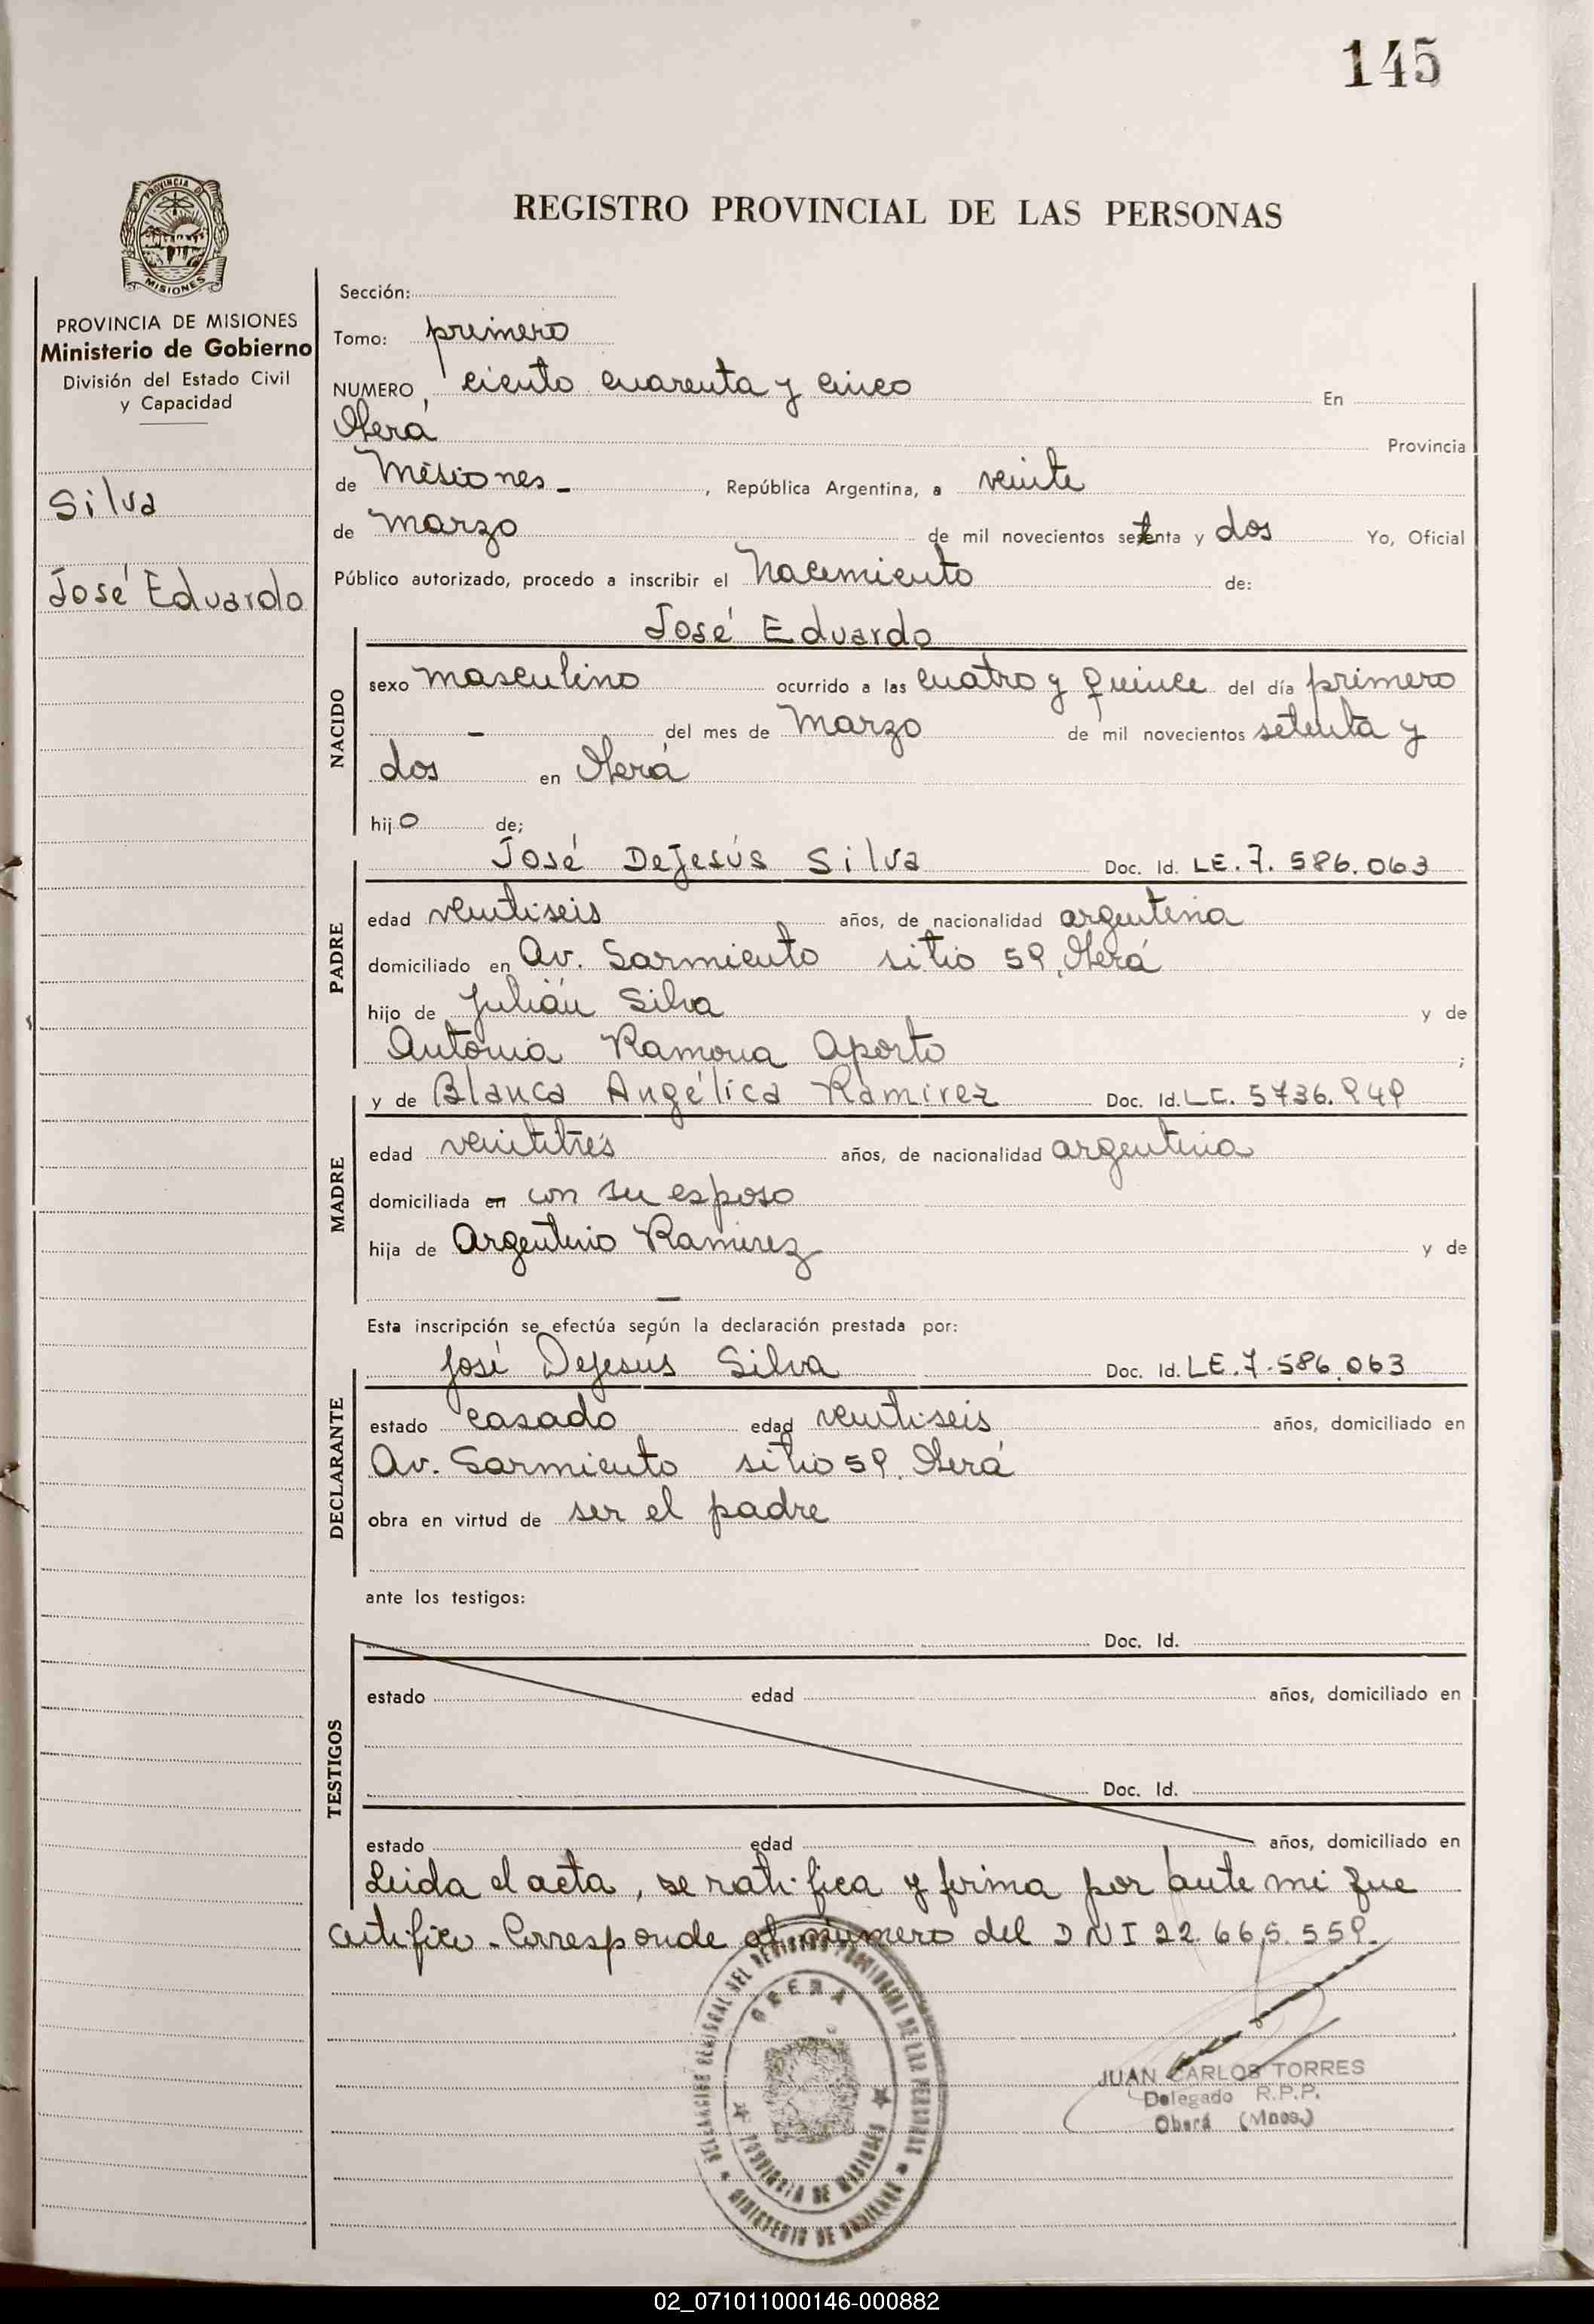 145
PROVINCIA DE
MISIONES
REGISTRO PROVINCIAL DE LAS PERSONAS
PROVINCIA DE MISIONES
Ministerio de Gobierno
División del Estado Civil
y Capacidad
Silva
José Eduardo
Sección:
Tomo: primero
NUMERO, ciento cuarenta y cinco En
Oberá Provincia
de Misiones - , República Argentina, a veinte
de marzo de mil novecientos setenta y dos Yo, Oficial
Público autorizado, procedo a inscribir el nacimiento de:
José Eduardo
NACIDO
sexo masculino ocurrido a las cuatro y quince del día primero
- del mes de marzo de mil novecientos setenta y
dos en Oberá
hijo de;
José DeJesús Silva Doc. Id. LE. 7. 586. 063
PADRE
edad veintiseis años, de nacionalidad argentina
domiciliado en Av. Sarmiento sitio 59, Oberá
hijo de Julián Silva y de
Antonia Ramona Aporto ;
y de Blanca Angélica Ramirez Doc. Id. LC. 5736. 949
MADRE
edad veintitres años, de nacionalidad argentina
domiciliada en con su esposo
hija de Argentino Ramirez y de
-
Esta inscripción se efectúa según la declaración prestada por:
José DeJesús Silva Doc. Id. LE. 7. 586. 063
DECLARANTE
estado casado edad veintiseis años, domiciliado en
Av. Sarmiento sitio 59. Oberá
obra en virtud de ser el padre
ante los testigos:
Doc. Id.
TESTIGOS
estado edad años, domiciliado en
Doc. Id.
estado edad años, domiciliado en
Leida el acta, se ratifica y firma por ante mi que
certifico - Corresponde al número del DNI 22. 665. 559.
OBERA
PROVINCIA DE MISIONES
MINISTERIO DE GOBIERNO
JUAN CARLOS TORRES
Delegado R.P.P.
Oberá (Mnes.)
02_071011000146-000882